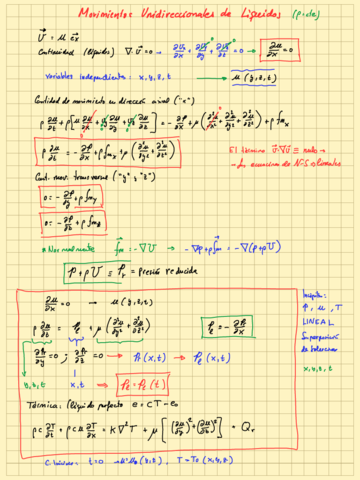 Movimientos Unidireccionales de Líquidos (ρ=cte)
U⃗ = u e⃗x
Continuidad (líquidos) ∇·U⃗ = 0 → ∂Ux/∂x + ∂Uy/∂y + ∂Uz/∂z = 0 → ∂u/∂x = 0
Variables independientes: x, y, z, t → u(y,z,t)
Cantidad de movimiento en dirección axial ("x")
ρ ∂u/∂t + ρ[u ∂u/∂x + uy ∂u/∂y + uz ∂u/∂z] = -∂p/∂x + μ(∂²u/∂x² + ∂²u/∂y² + ∂²u/∂z²) + ρ fmx
ρ ∂u/∂t = -∂p/∂x + ρ fmx + μ(∂²u/∂y² + ∂²u/∂z²)
El término U⃗·∇U⃗ ≡ nulo →
→ La ecuación de N-S es lineal
Cant. mov. transversal ("y", "z")
0 = -∂p/∂y + ρ fmy
0 = -∂p/∂z + ρ fmz
* Normalmente f⃗m = -∇U → -∇p + ρ f⃗m = -∇(p+ρU)
p + ρU = pr = Presión reducida
∂u/∂x = 0 → u(y,z,t)
ρ ∂u/∂t = Pl + μ(∂²u/∂y² + ∂²u/∂z²)
Pl = -∂pr/∂x
∂pr/∂y = 0 ; ∂pr/∂z = 0 → pr(x,t) → Pl(x,t)
y,z,t x,t → Pl = Pl(t)
Incógnitas:
p, u, T
LINEAL
Superposición
de soluciones
x,y,z,t
Térmica: (líquido perfecto e = cT - e0
ρc ∂T/∂t + ρc u ∂T/∂x = K∇²T + μ[(∂u/∂y)² + (∂u/∂z)²] + Qr
C. Iniciales: t=0 → u=u0(y,z), T=T0(x,y,z)